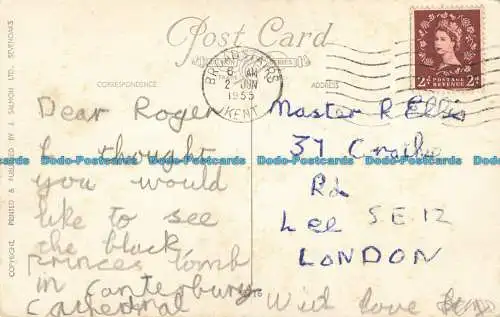 Post Card
CORRESPONDENCE
ADDRESS
BROADSTAIRS
8 - AM
2 JUN
1955
KENT
POSTAGE
REVENUE
2D 2D
Dear Roger
I thought
you would
like to see
the black
princes tomb
in Canterbury
Cathedral
Master R Ellis
37
Rd
Lee S.E 12
LONDON
With love
COPYRIGHT. PRINTED & PUBLISHED BY J. SALMON LTD., SEVENOAKS
Dodo-Postcards Dodo-Postcards Dodo-Postcards Dodo-Postcards Dodo-Postcards